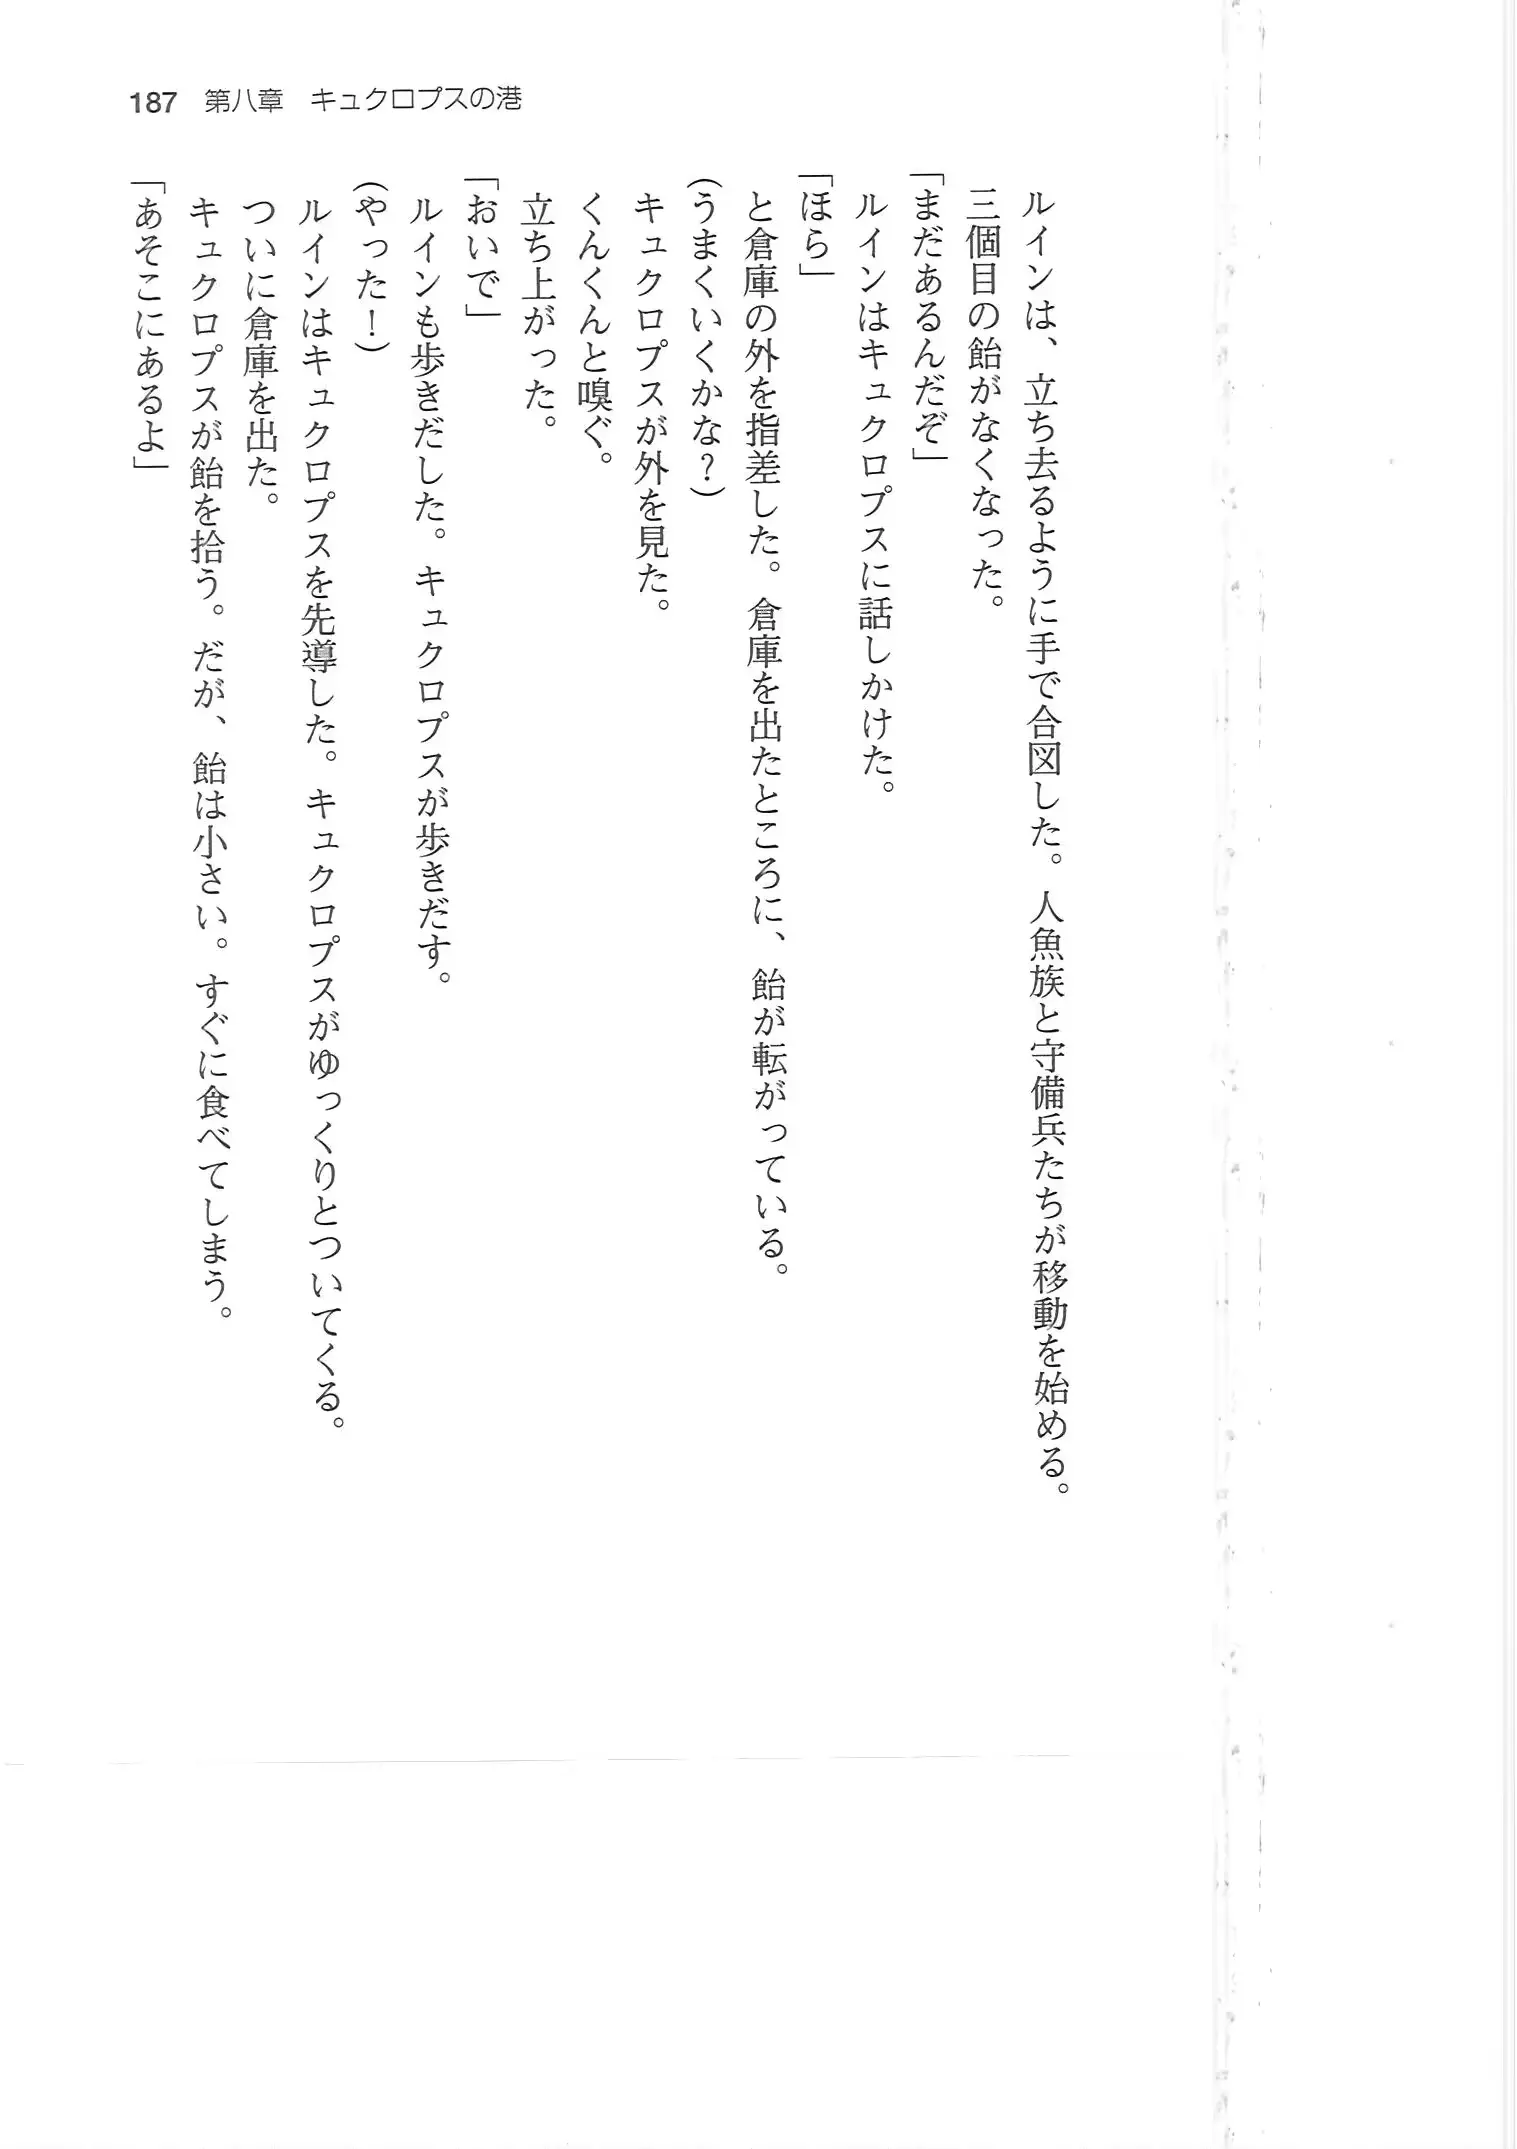 187 第八章 キュクロプスの港
ルインは、立ち去るように手で合図した。人魚族と守備兵たちが移動を始める。
三個目の飴がなくなった。
「まだあるんだぞ」
ルインはキュクロプスに話しかけた。
「ほら」
と倉庫の外を指差した。倉庫を出たところに、飴が転がっている。
(うまくいくかな?)
キュクロプスが外を見た。
くんくんと嗅ぐ。
立ち上がった。
「おいで」
ルインも歩きだした。キュクロプスが歩きだす。
(やった!)
ルインはキュクロプスを先導した。キュクロプスがゆっくりとついてくる。
ついに倉庫を出た。
キュクロプスが飴を拾う。だが、飴は小さい。すぐに食べてしまう。
「あそこにあるよ」